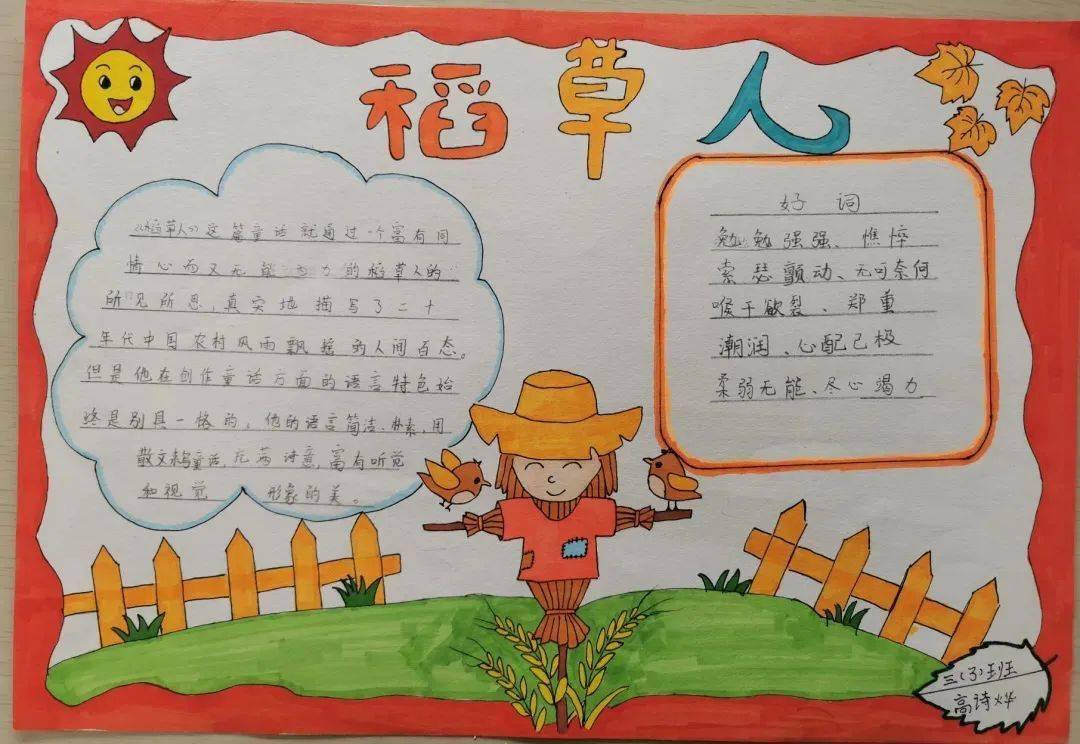 稻草人
《稻草人》这篇童话就通过一个富有同
情心而又无能为力的稻草人的
所见所思,真实地描写了二十
年代中国农村风雨飘摇的人间百态。
但是他在创作童话方面的语言特色始
终是别具一格的。他的语言简洁、朴素,用
散文来写童话,充满诗意,富有听觉
和视觉 形象的美。
好词
勉勉强强、憔悴
索瑟颤动、无可奈何
喉干欲裂、郑重
潮润、心配己极
柔弱无能、尽心竭力
三(3)班
高诗烨